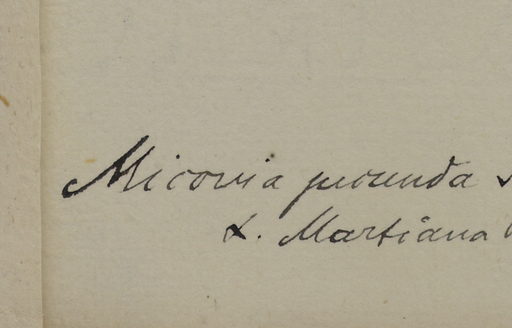 Miconia jucunda
α. Martiana